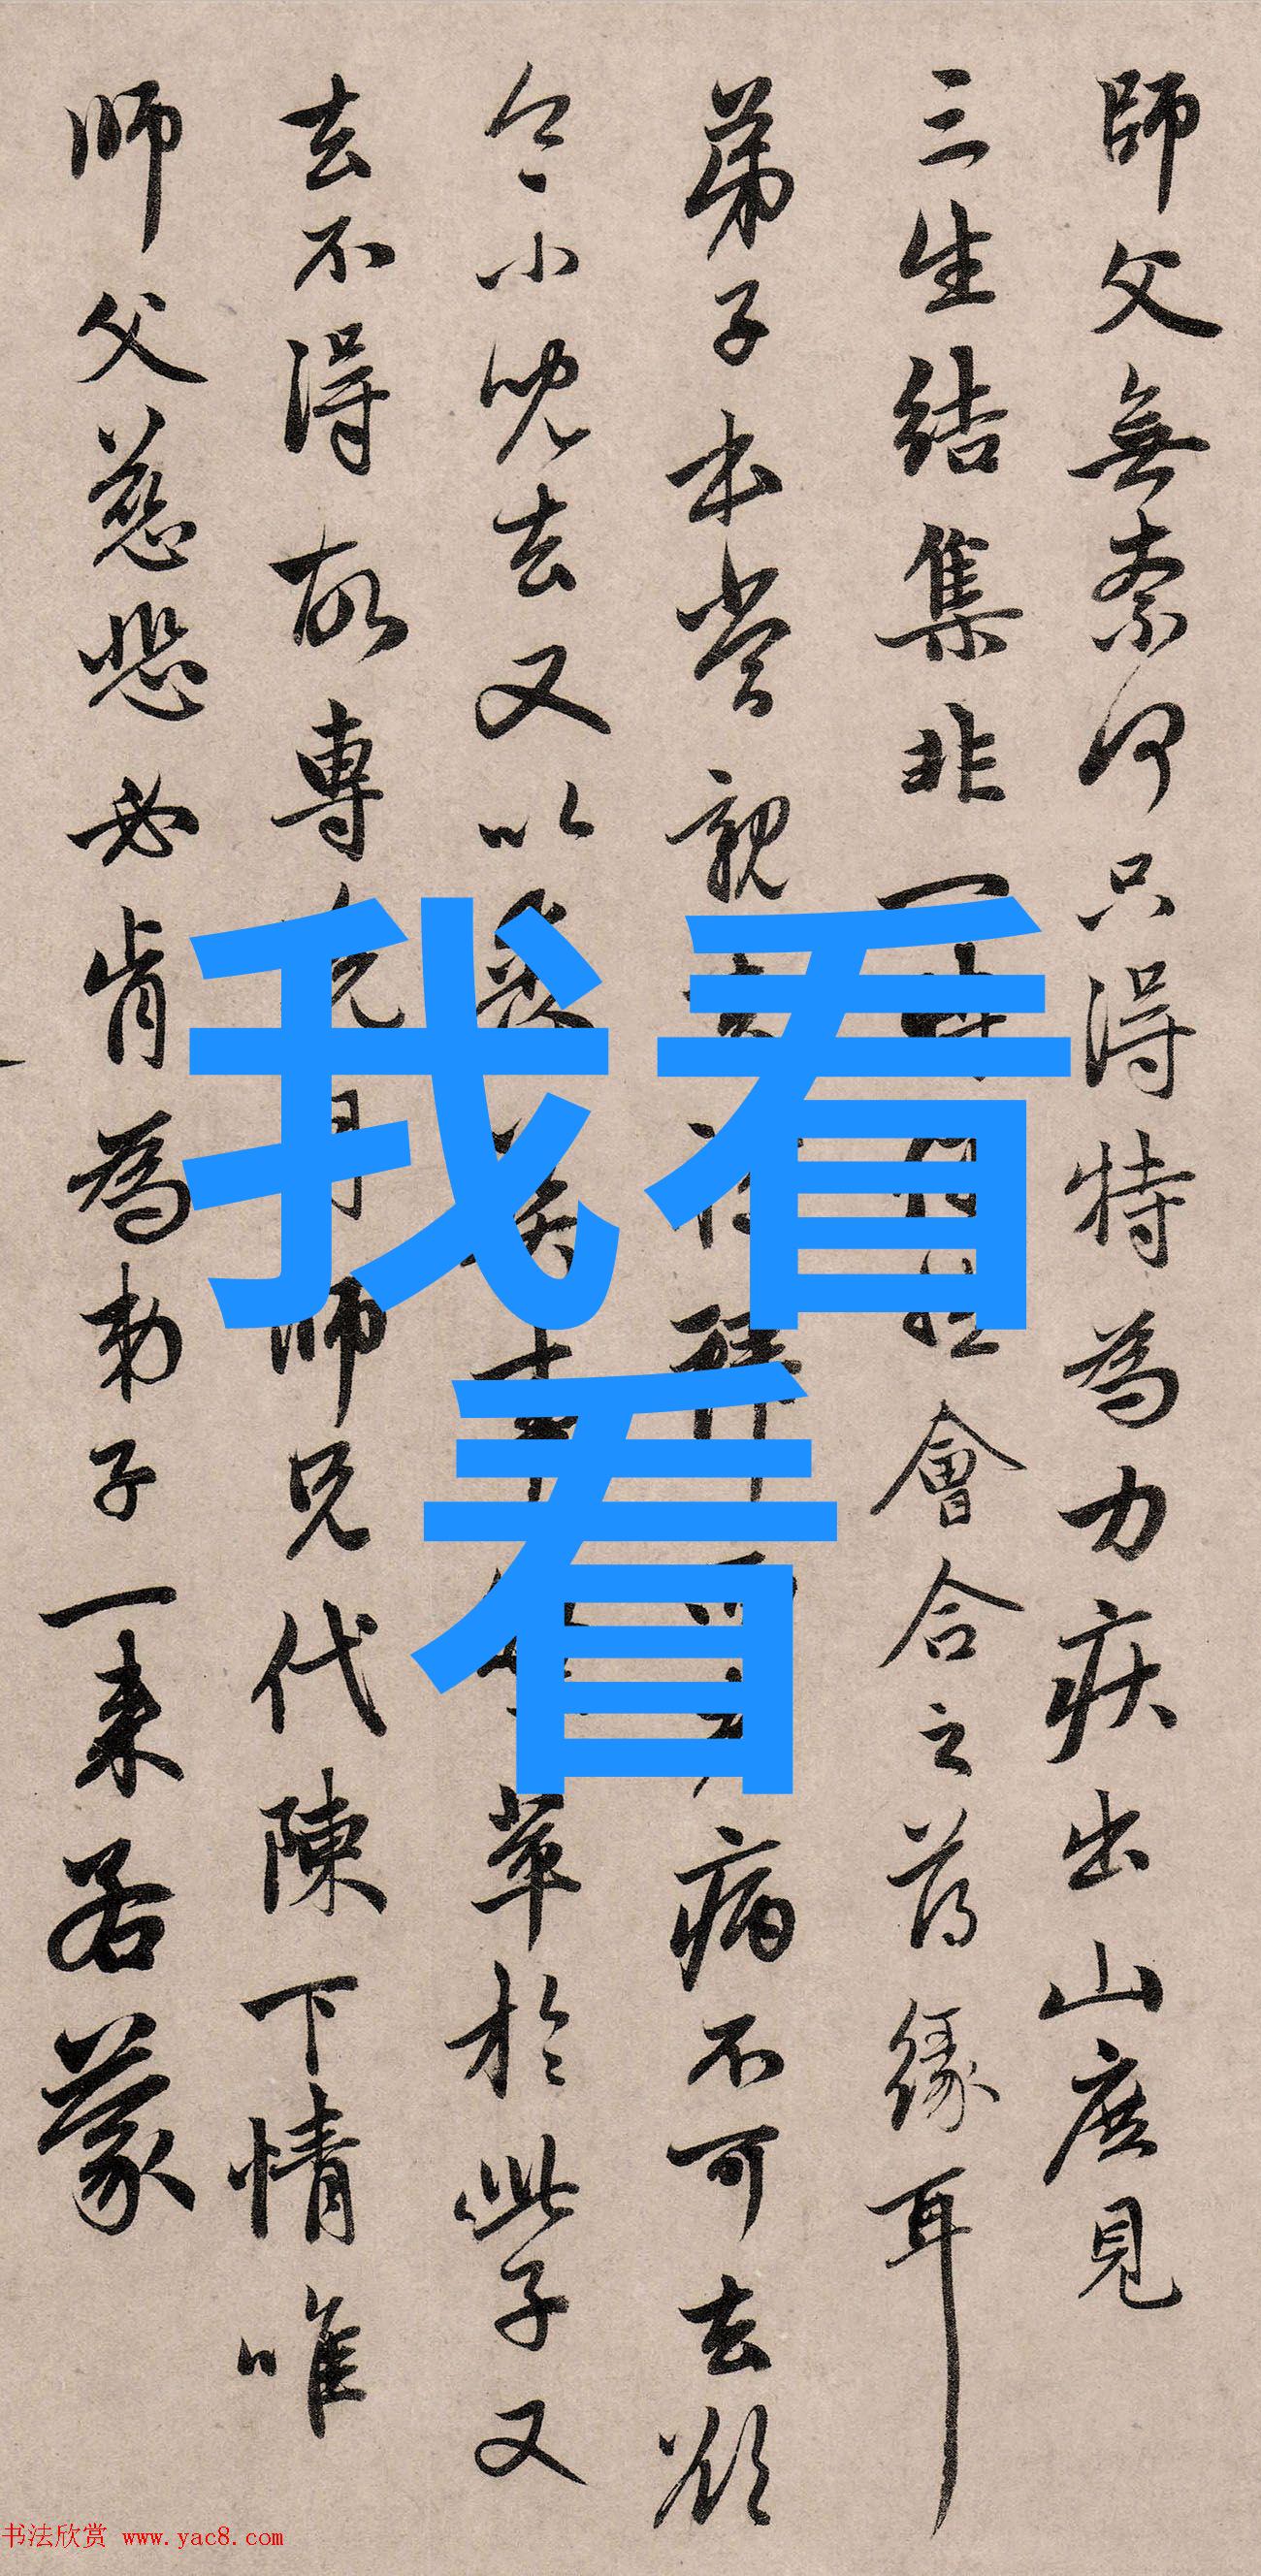 師父無奈何只得特為力疾出山庶見
三生結集非一
會合之薄緣耳
弟子本嘗親
病不可去欲
令小兒去又以
草於此子又
去不得故專
師兄代陳下情唯
師父慈悲必肯為弟子一来若蒙
我看
看
书法欣赏 www.yac8.com